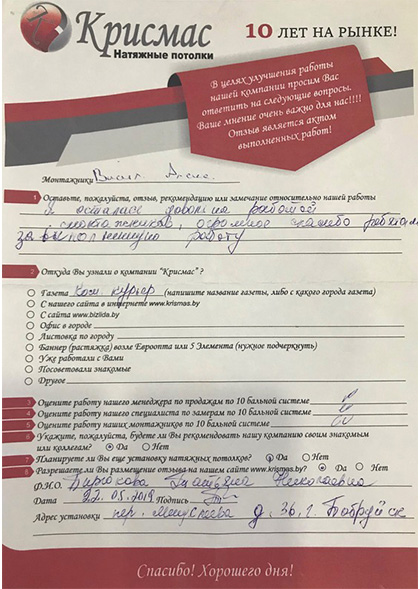 Крисмас
Натяжные потолки
10 ЛЕТ НА РЫНКЕ!
В целях улучшения работы
нашей компании просим Вас
ответить на следующие вопросы.
Ваше мнение очень важно для нас!!!!
Отзыв является актом
выполненных работ!
Монтажники
1 Оставьте, пожалуйста, отзыв, рекомендацию или замечание относительно нашей работы
Я осталась довольна работой
монтажников, огромное спасибо
за выполненную работу
2 Откуда Вы узнали о компании "Крисмас"?
Газета Ком. курьер (напишите название газеты, либо с какого города газета)
С нашего сайта в интернете www.krismas.by
С сайта www.bizlida.by
Офис в городе
Листовка по городу
Баннер (растяжка) возле Евроопта или 5 Элемента (нужное подчеркнуть)
Уже работали с Вами
Посоветовали знакомые
Другое
3 Оцените работу нашего менеджера по продажам по 10 бальной системе
4 Оцените работу нашего специалиста по замерам по 10 бальной системе
5 Оцените работу наших монтажников по 10 бальной системе
6 Укажите, пожалуйста, будете ли Вы рекомендовать нашу компанию своим знакомым
или коллегам? Да Нет
7 Планируете ли Вы еще установку натяжных потолков? Да Нет
8 Разрешаете ли Вы размещение отзыва на нашем сайте www.krismas.by? Да Нет
Ф.И.О. Бирюкова Татьяна Николаевна
Дата 22.05.2019 Подпись
Адрес установки пер. д. 36, г. Бобруйск
Спасибо! Хорошего дня!